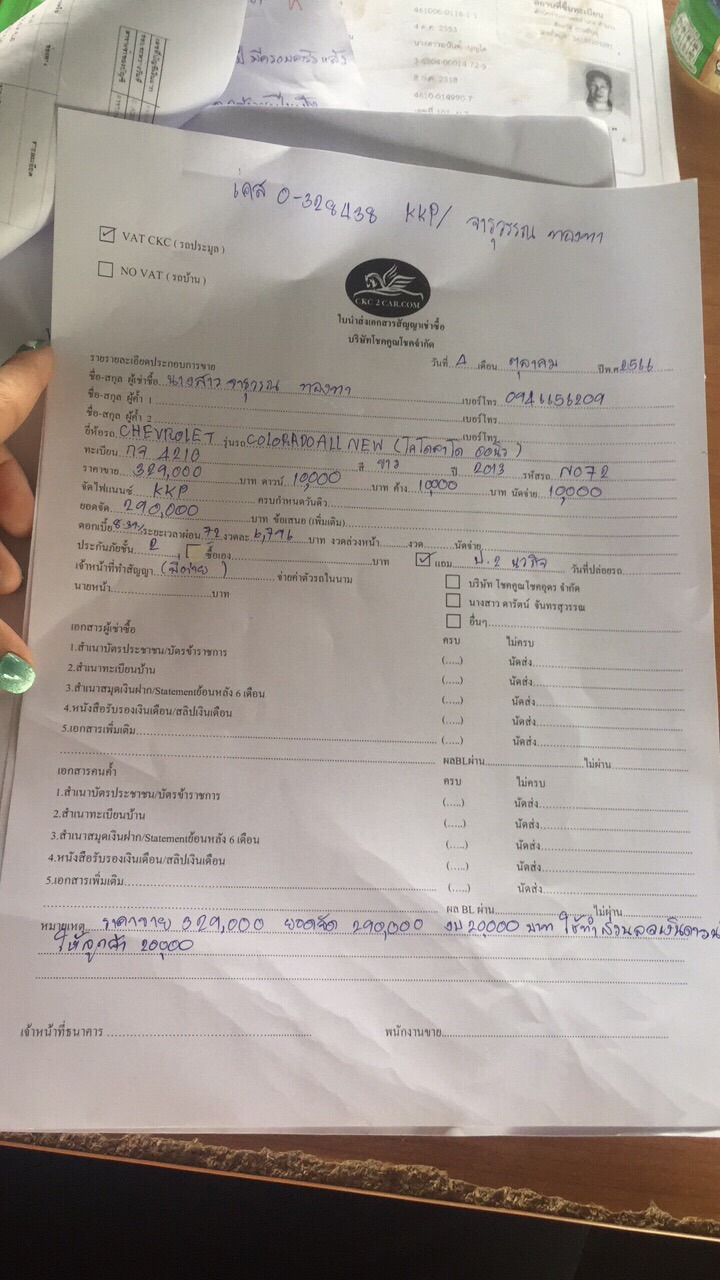 461006-0116-1 1
4 ต.ค. 2553
4610-014990-7
เคส 0-328438 KKP/ จารุวรรณ ทองทา
VAT CKC ( รถประมูล )
NO VAT ( รถบ้าน )
CKC 2 CAR.COM
ใบนำส่งเอกสารสัญญาเช่าซื้อ
บริษัทโชคคูณโชคจำกัด
รายรายละเอียดประกอบการขาย วันที่ 4 เดือน ตุลาคม ปีพ.ศ 2566
ชื่อ-สกุล ผู้เช่าซื้อ นางสาว จารุวรรณ ทองทา เบอร์โทร 0941156209
ชื่อ-สกุล ผู้ค้ำ 1 เบอร์โทร
ชื่อ-สกุล ผู้ค้ำ 2 เบอร์โทร
ยี่ห้อรถ CHEVROLET รุ่นรถ COLORADO ALL NEW (โคโลลาโด ออนิว)
ทะเบียน กจ 4210 สี ขาว ปี 2013 รหัสรถ N072
ราคาขาย 329,000 บาท ดาวน์ 10,000 บาท ค้าง 10,000 บาท นัดจ่าย 10,000
จัดไฟแนนซ์ KKP ครบกำหนดวันดิว
ยอดจัด 290,000 บาท ข้อเสนอ (เพิ่มเติม)
ดอกเบี้ย ระยะเวลาผ่อน 72 งวดละ 6,796 บาท งวดล่วงหน้า งวด นัดจ่าย
ประกันภัยชั้น 2 ซื้อเอง บาท แถม ป.2 นวกิจ วันที่ปล่อยรถ
เจ้าหน้าที่ทำสัญญา จ่ายค่าตัวรถในนาม บริษัท โชคคูณโชคอุดร จำกัด
นายหน้า บาท นางสาว ดารัตน์ จันทรสุวรรณ
อื่นๆ
เอกสารผู้เช่าซื้อ ครบ ไม่ครบ
1.สำเนาบัตรประชาชน/บัตรข้าราชการ (.....) นัดส่ง
2.สำเนาทะเบียนบ้าน (.....) นัดส่ง
3.สำเนาสมุดเงินฝาก/Statementย้อนหลัง 6 เดือน (.....) นัดส่ง
4.หนังสือรับรองเงินเดือน/สลิปเงินเดือน (.....) นัดส่ง
5.เอกสารเพิ่มเติม (.....) นัดส่ง
ผลBLผ่าน ไม่ผ่าน
เอกสารคนค้ำ ครบ ไม่ครบ
1.สำเนาบัตรประชาชน/บัตรข้าราชการ (.....) นัดส่ง
2.สำเนาทะเบียนบ้าน (.....) นัดส่ง
3.สำเนาสมุดเงินฝาก/Statementย้อนหลัง 6 เดือน (.....) นัดส่ง
4.หนังสือรับรองเงินเดือน/สลิปเงินเดือน (.....) นัดส่ง
5.เอกสารเพิ่มเติม (.....) นัดส่ง
ผล BL ผ่าน ไม่ผ่าน
หมายเหตุ ราคาขาย 329,000 ยอดจัด 290,000 งบ 20,000 บาท ใช้ทำส่วนลดเงินดาวน์
ให้ลูกค้า 20,000
เจ้าหน้าที่ธนาคาร พนักงานขาย